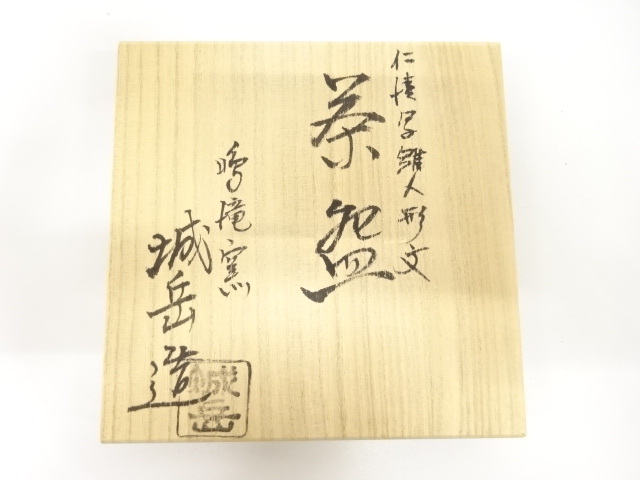 仁清写雛人形文
茶盌
鳴滝窯
城岳造
城岳